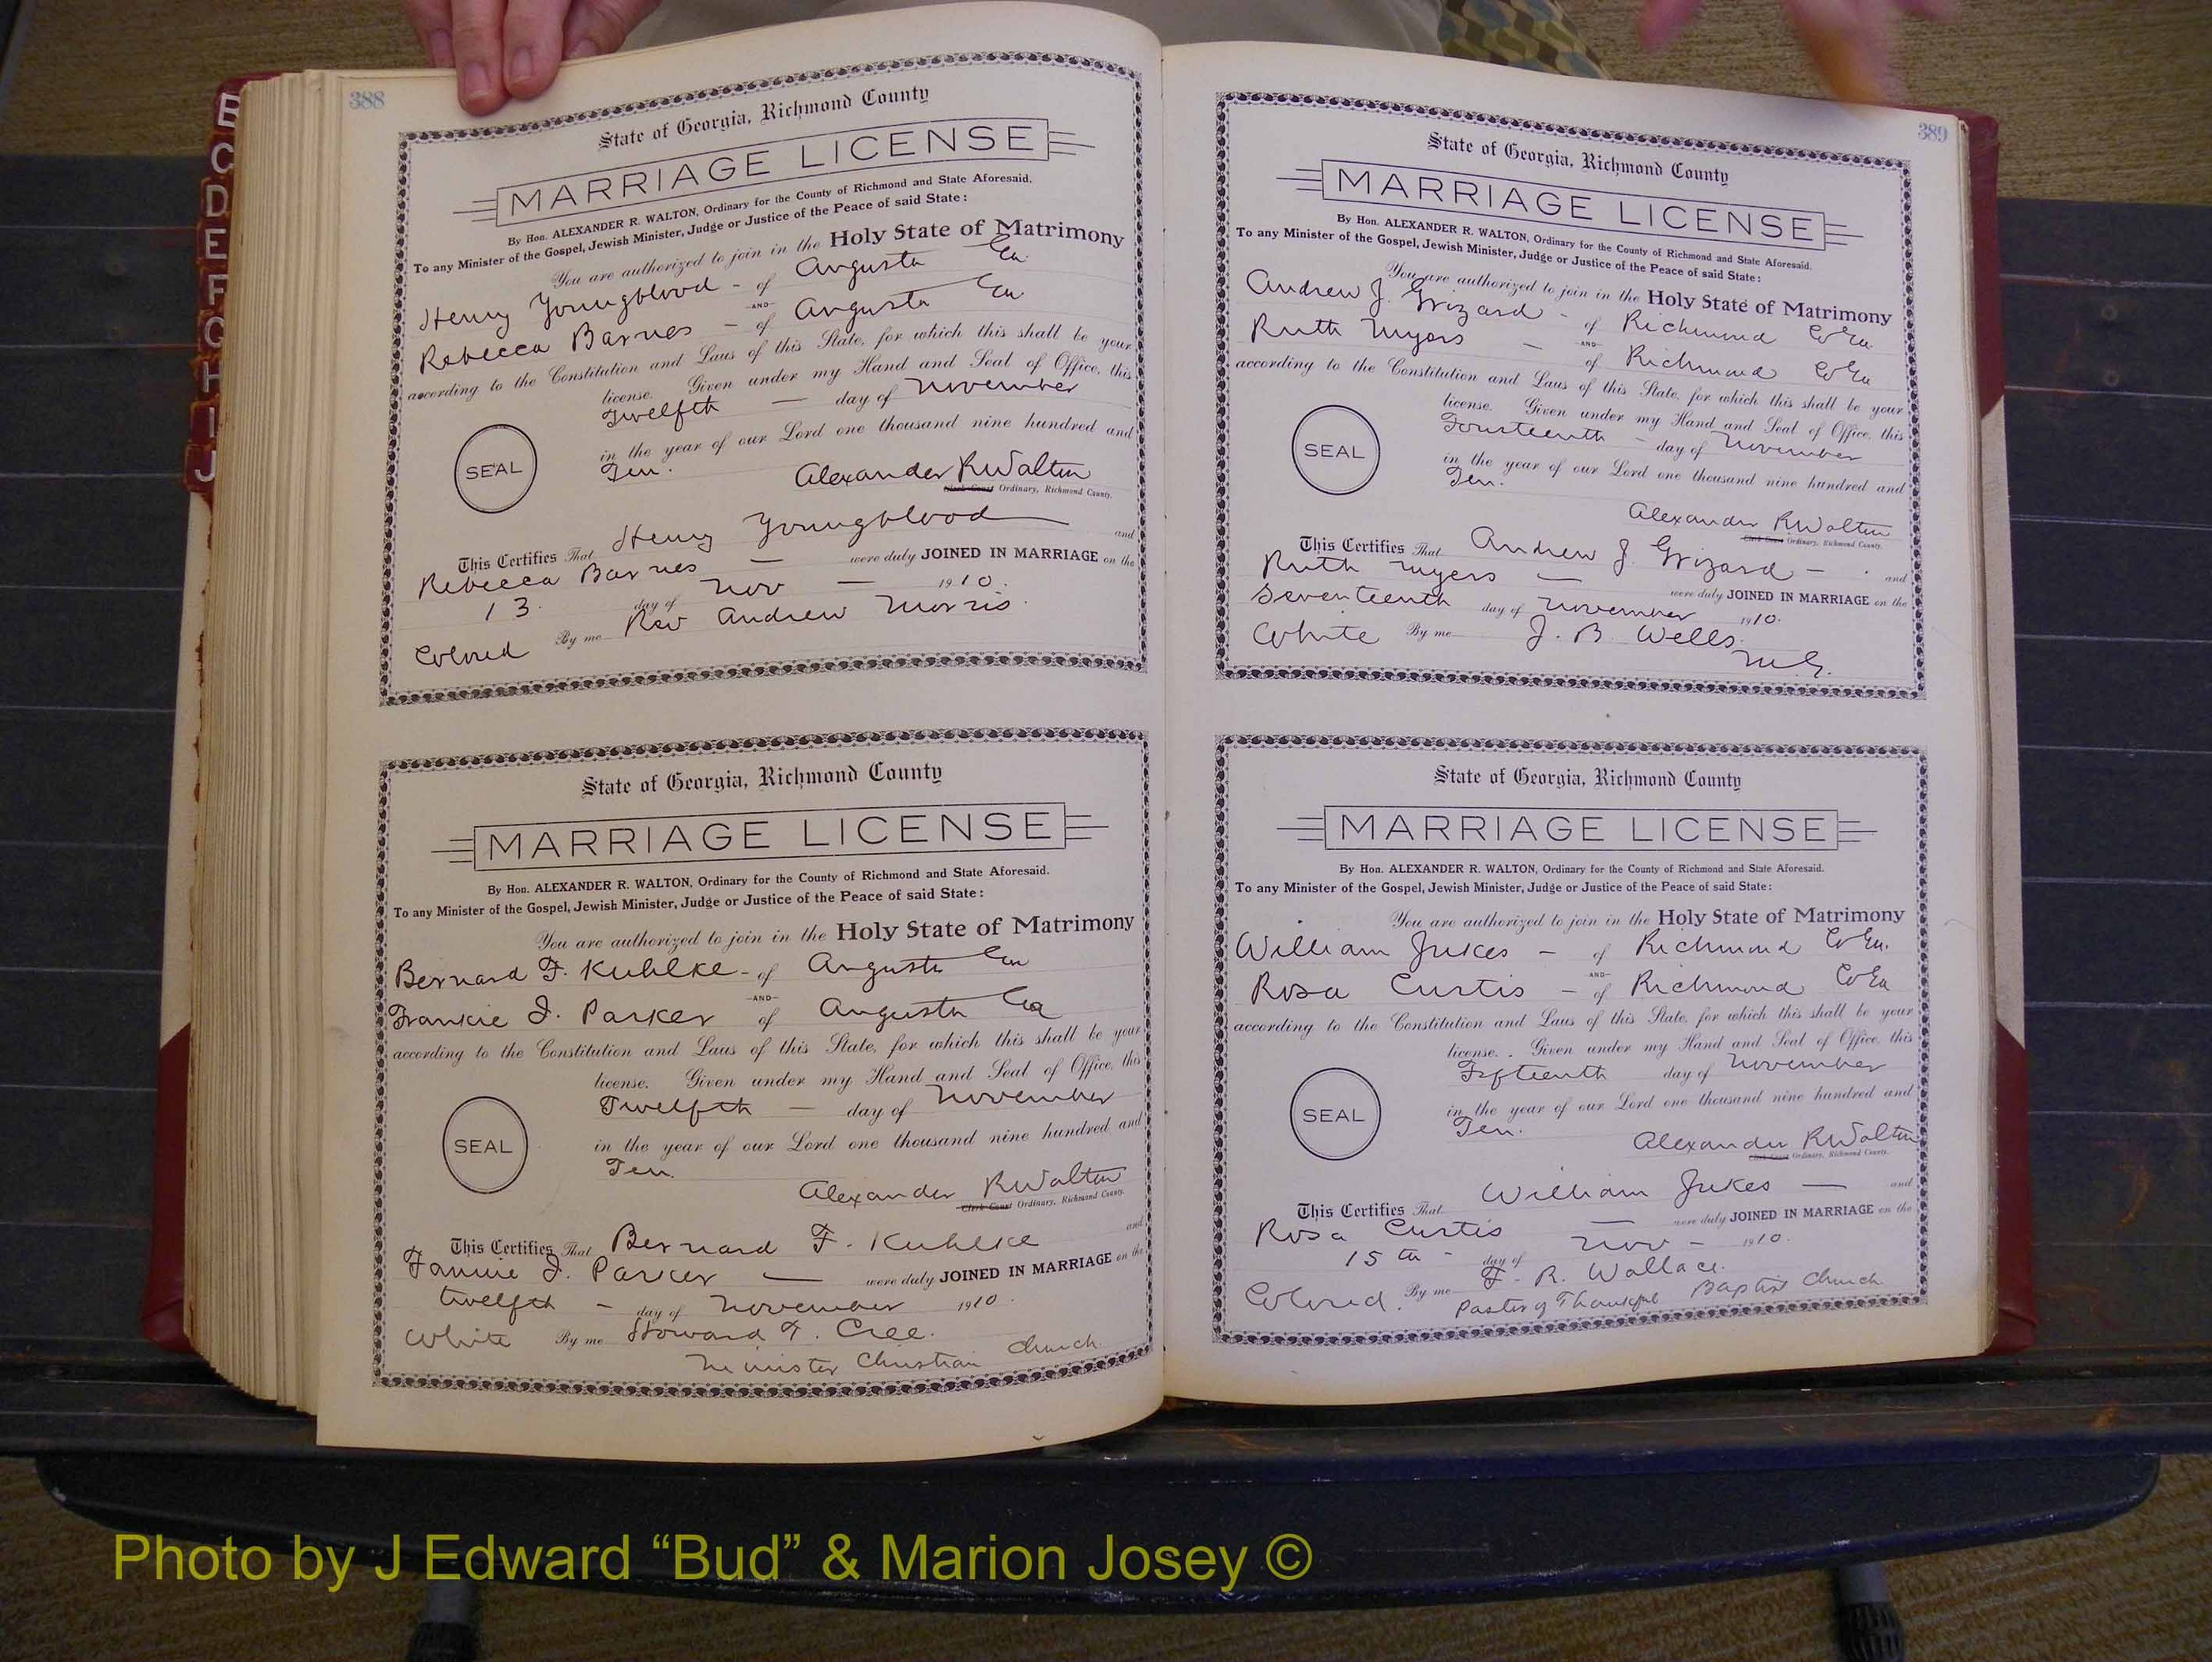 B
C
D
E
F
G
H
I
J
388
State of Georgia, Richmond County
MARRIAGE LICENSE
By Hon. ALEXANDER R. WALTON, Ordinary for the County of Richmond and State Aforesaid.
To any Minister of the Gospel, Jewish Minister, Judge or Justice of the Peace of said State:
You are authorized to join in the Holy State of Matrimony
Henry Youngblood - of Augusta Ga
-AND-
Rebecca Barnes - of Augusta Ga
according to the Constitution and Laws of this State, for which this shall be your
license. Given under my Hand and Seal of Office, this
Twelfth - day of November
SEAL
in the year of our Lord one thousand nine hundred and
Ten.
Alexander R Walton
Clerk Court Ordinary, Richmond County.
This Certifies That Henry Youngblood and
Rebecca Barnes - were duly JOINED IN MARRIAGE on the
13. day of Nov - 1910.
Colored By me Rev Andrew Morris.
State of Georgia, Richmond County
MARRIAGE LICENSE
By Hon. ALEXANDER R. WALTON, Ordinary for the County of Richmond and State Aforesaid.
To any Minister of the Gospel, Jewish Minister, Judge or Justice of the Peace of said State:
You are authorized to join in the Holy State of Matrimony
Bernard F. Kuhlke - of Augusta Ga
-AND-
Frankie I. Parker of Augusta Ga
according to the Constitution and Laws of this State, for which this shall be your
license. Given under my Hand and Seal of Office, this
Twelfth - day of November
SEAL
in the year of our Lord one thousand nine hundred and
Ten.
Alexander R Walton
Clerk Court Ordinary, Richmond County.
This Certifies That Bernard F. Kuhlke and
Fannie I. Parker - were duly JOINED IN MARRIAGE on the
twelfth - day of November 1910.
White By me Howard T. Cree.
Minister Christian Church
389
State of Georgia, Richmond County
MARRIAGE LICENSE
By Hon. ALEXANDER R. WALTON, Ordinary for the County of Richmond and State Aforesaid.
To any Minister of the Gospel, Jewish Minister, Judge or Justice of the Peace of said State:
You are authorized to join in the Holy State of Matrimony
Andrew J. Grizard - of Richmond Co Ga.
-AND-
Ruth Myers - of Richmond Co Ga
according to the Constitution and Laws of this State, for which this shall be your
license. Given under my Hand and Seal of Office, this
Fourteenth - day of November
SEAL
in the year of our Lord one thousand nine hundred and
Ten.
Alexander R Walton
Clerk Court Ordinary, Richmond County.
This Certifies That Andrew J. Grizard - and
Ruth Myers - were duly JOINED IN MARRIAGE on the
Seventeenth day of November 1910.
White By me J. B. Wells.
M.G.
State of Georgia, Richmond County
MARRIAGE LICENSE
By Hon. ALEXANDER R. WALTON, Ordinary for the County of Richmond and State Aforesaid.
To any Minister of the Gospel, Jewish Minister, Judge or Justice of the Peace of said State:
You are authorized to join in the Holy State of Matrimony
William Jukes - of Richmond Co Ga.
-AND-
Rosa Curtis - of Richmond Co Ga
according to the Constitution and Laws of this State, for which this shall be your
license. Given under my Hand and Seal of Office, this
Fifteenth day of November
SEAL
in the year of our Lord one thousand nine hundred and
Ten.
Alexander R Walton
Clerk Court Ordinary, Richmond County.
This Certifies That William Jukes - and
Rosa Curtis - were duly JOINED IN MARRIAGE on the
15th - day of Nov - 1910.
Colored. By me F. R. Wallace.
Pastor of Thankful Baptist Church
Photo by J Edward “Bud” & Marion Josey ©